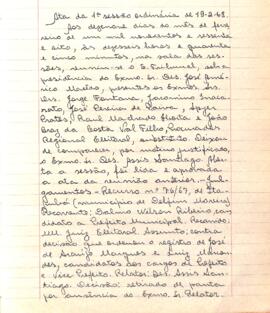 Ata da 1ª sessão ordinária de 19-2-68
Aos dezenove dias do mês de feve-
reiro de um mil novecentos e sessenta
e oito, às dezesseis horas e quarenta
e cinco minutos, na sala das ses-
sões, reuniu-se o E. Tribunal, sob a
presidência do Exmo. Sr. Des. José Amé-
rico Macêdo, presentes os Exmos. Srs.
Drs. Jorge Fontana, Jacomino Inaca-
rato, José Pereira de Paiva,
Prates, Raul Machado Horta e João
Braz da Costa Val Filho, Procurador
Regional Eleitoral, substituto. Deixou
de comparecer, por motivo justificado,
o Exmo. Sr. Des. Assis Santiago. Aber-
ta a sessão, foi lida e aprovada
a ata da reunião anterior. Jul-
gamentos - Recurso nº 76/67, de Ita-
jubá (município de Delfim Moreira)
Recorrente: Wilson Ribeiro, can-
didato a Prefeito Municipal. Recorrido:
MM. Juiz Eleitoral. Assunto: contra
decisão que ordenou o registro de José
de Araújo Marques e Luiz
candidatos aos cargos de Prefeito
e Vice Prefeito. Relator: Des. Assis San-
tiago. Decisão: retirado de pauta
por ausência do Exmo. Sr. Relator.